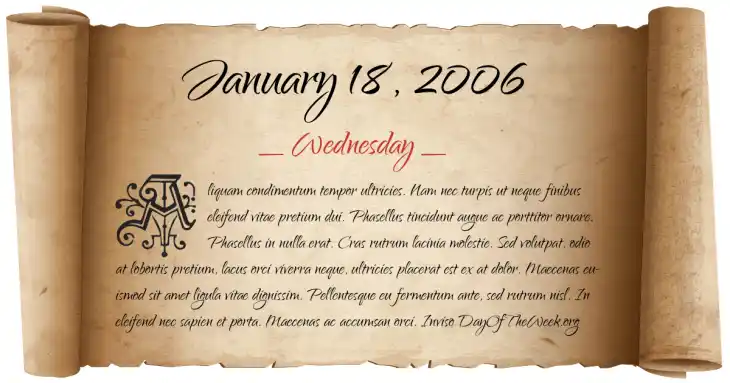 January 18, 2006
_ Wednesday _
Aliquam condimentum tempor ultricies. Nam nec turpis ut neque finibus
eleifend vitae pretium dui. Phasellus tincidunt augue ac porttitor ornare.
Phasellus in nulla erat. Cras rutrum lacinia molestie. Sed volutpat, odio
at lobortis pretium, lacus orci viverra neque, ultricies placerat est ex at dolor. Maecenas eu-
ismod sit amet ligula vitae dignissim. Pellentesque eu fermentum ante, sed rutrum nisl. In
eleifend nec sapien et porta. Maecenas ac accumsan orci. Inviso DayOfTheWeek.org